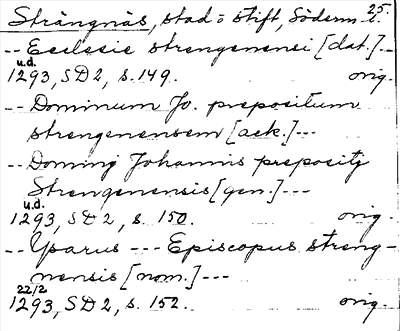 25.
Strängnäs, stad o stift, Söderm. l.
-- Ecclesie strengenensi [dat.] --
u.d.
1293, SD 2, s. 149. orig.
-- Dominum Jo. prepositum
strengenensem [ack.] ---
-- Domini Johannis prepositj
Strengenensis [gen.] ---
u.d.
1293, SD 2, s. 150. orig.
-- Ysarus --- Episcopus streng-
nensis [nom.] ---
22/2
1293, SD 2, s. 152. orig.